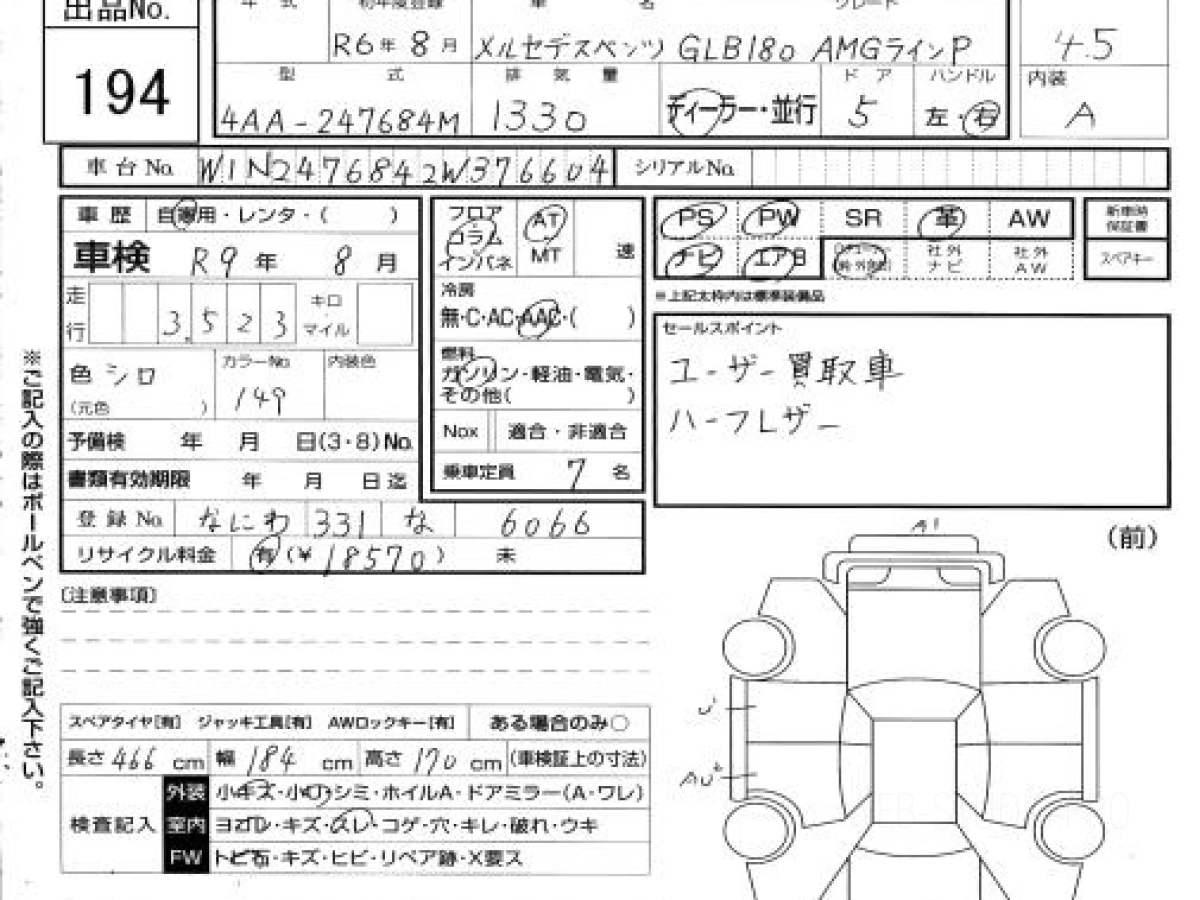 出品No.
年 式 初年度登録 車 名 グレード
R6年 8月 メルセデスベンツ GLB180 AMGラインP 4.5
194
型 式 排 気 量 ディーラー・並行 ド ア ハンドル 内装
4AA-247684M 1330 5 左・右 A
車台No. W1N2476842W376604 シリアルNo.
車歴 自家用・レンタ・( )
車検 R9年 8月
走行 3,523 キロ マイル
色 シロ カラーNo. 149 内装色
(元色 )
予備検 年 月 日(3・8)No.
書類有効期限 年 月 日迄
登録No. なにわ 331 な 6066
リサイクル料金 有(¥18570) 未
フロア コラム インパネ
AT MT 速
冷房
無・C・AC・AAC・( )
燃料
ガソリン・軽油・電気・
その他( )
Nox 適合・非適合
乗車定員 7 名
PS PW SR 革 AW
ナビ エアB 社外ナビ 社外AW
新車時保証書
スペアキー
※上記太枠内は標準装備品
セールスポイント
ユーザー買取車
ハーフレザー
〔注意事項〕
※ご記入の際はボールペンで強くご記入下さい。
スペアタイヤ[有] ジャッキ工具[有] AWロックキー[有] ある場合のみ○
長さ 466 cm 幅 184 cm 高さ 170 cm (車検証上の寸法)
検査記入
外装 小キズ・小凹・シミ・ホイルA・ドアミラー(A・ワレ)
室内 ヨゴレ・キズ・スレ・コゲ・穴・キレ・破れ・ウキ
FW トビ石・キズ・ヒビ・リペア跡・X要ス
A1
(前)
U1
AU2